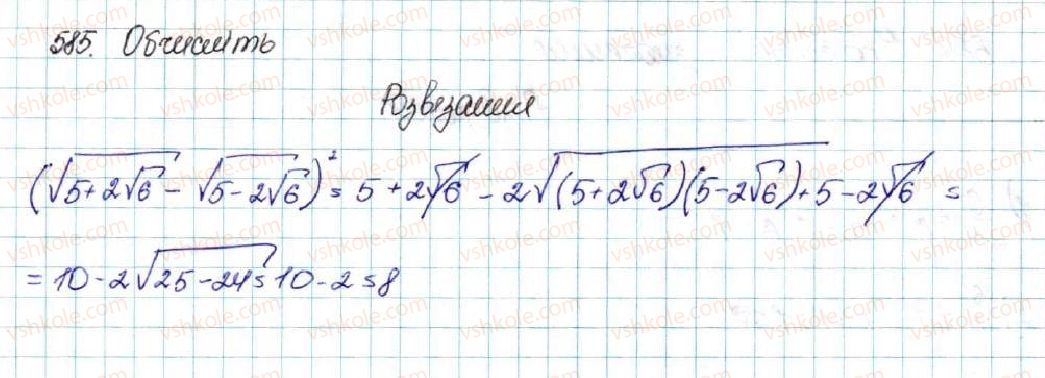 585. Обчисліть
Розвязання
(√(5+2√6) - √(5-2√6))² = 5 + 2√6 - 2√((5+2√6)(5-2√6)) + 5 - 2√6 =
= 10 - 2√(25-24) = 10 - 2 = 8